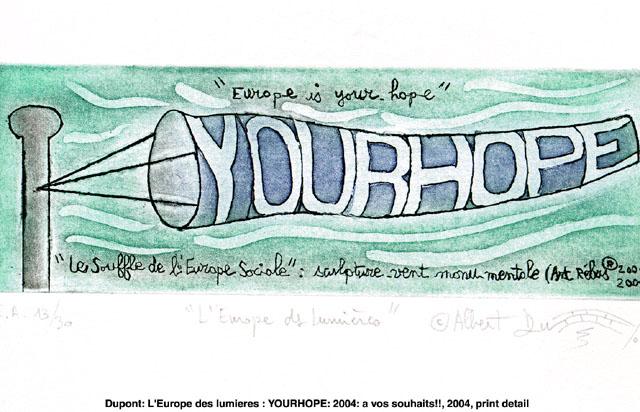 "Europe is your hope"
YOURHOPE
"Le Souffle de l'Europe Sociale" : sculpture vent monumentale (Art Rébus ®
E.A. 13/30 "L'Europe des Lumières" © Albert Du
Dupont: L'Europe des lumieres : YOURHOPE: 2004: a vos souhaits!!, 2004, print detail